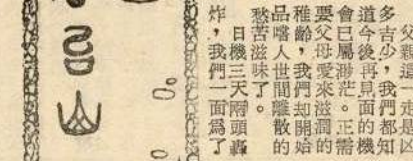 父親這一走是凶
多吉少，我們都知
道今後再見面的機
會已屬渺茫。正需
要父母愛來滋潤的
稚齡，我們却開始
品嚐人世間離散的
愁苦滋味了。
日機三天兩頭轟
炸，我們一面爲了